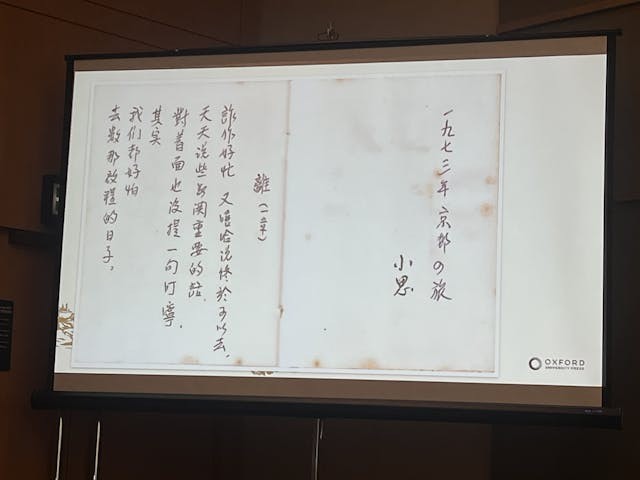 一九七三年 京都の旅
小思
離（二章）
詐作好忙 又嘻哈说终於可以去，
天天说些无關重要的話，
對着面也没提一句叮嚀，
其实
我们都好怕
去数那啟程的日子。
OXFORD
UNIVERSITY PRESS